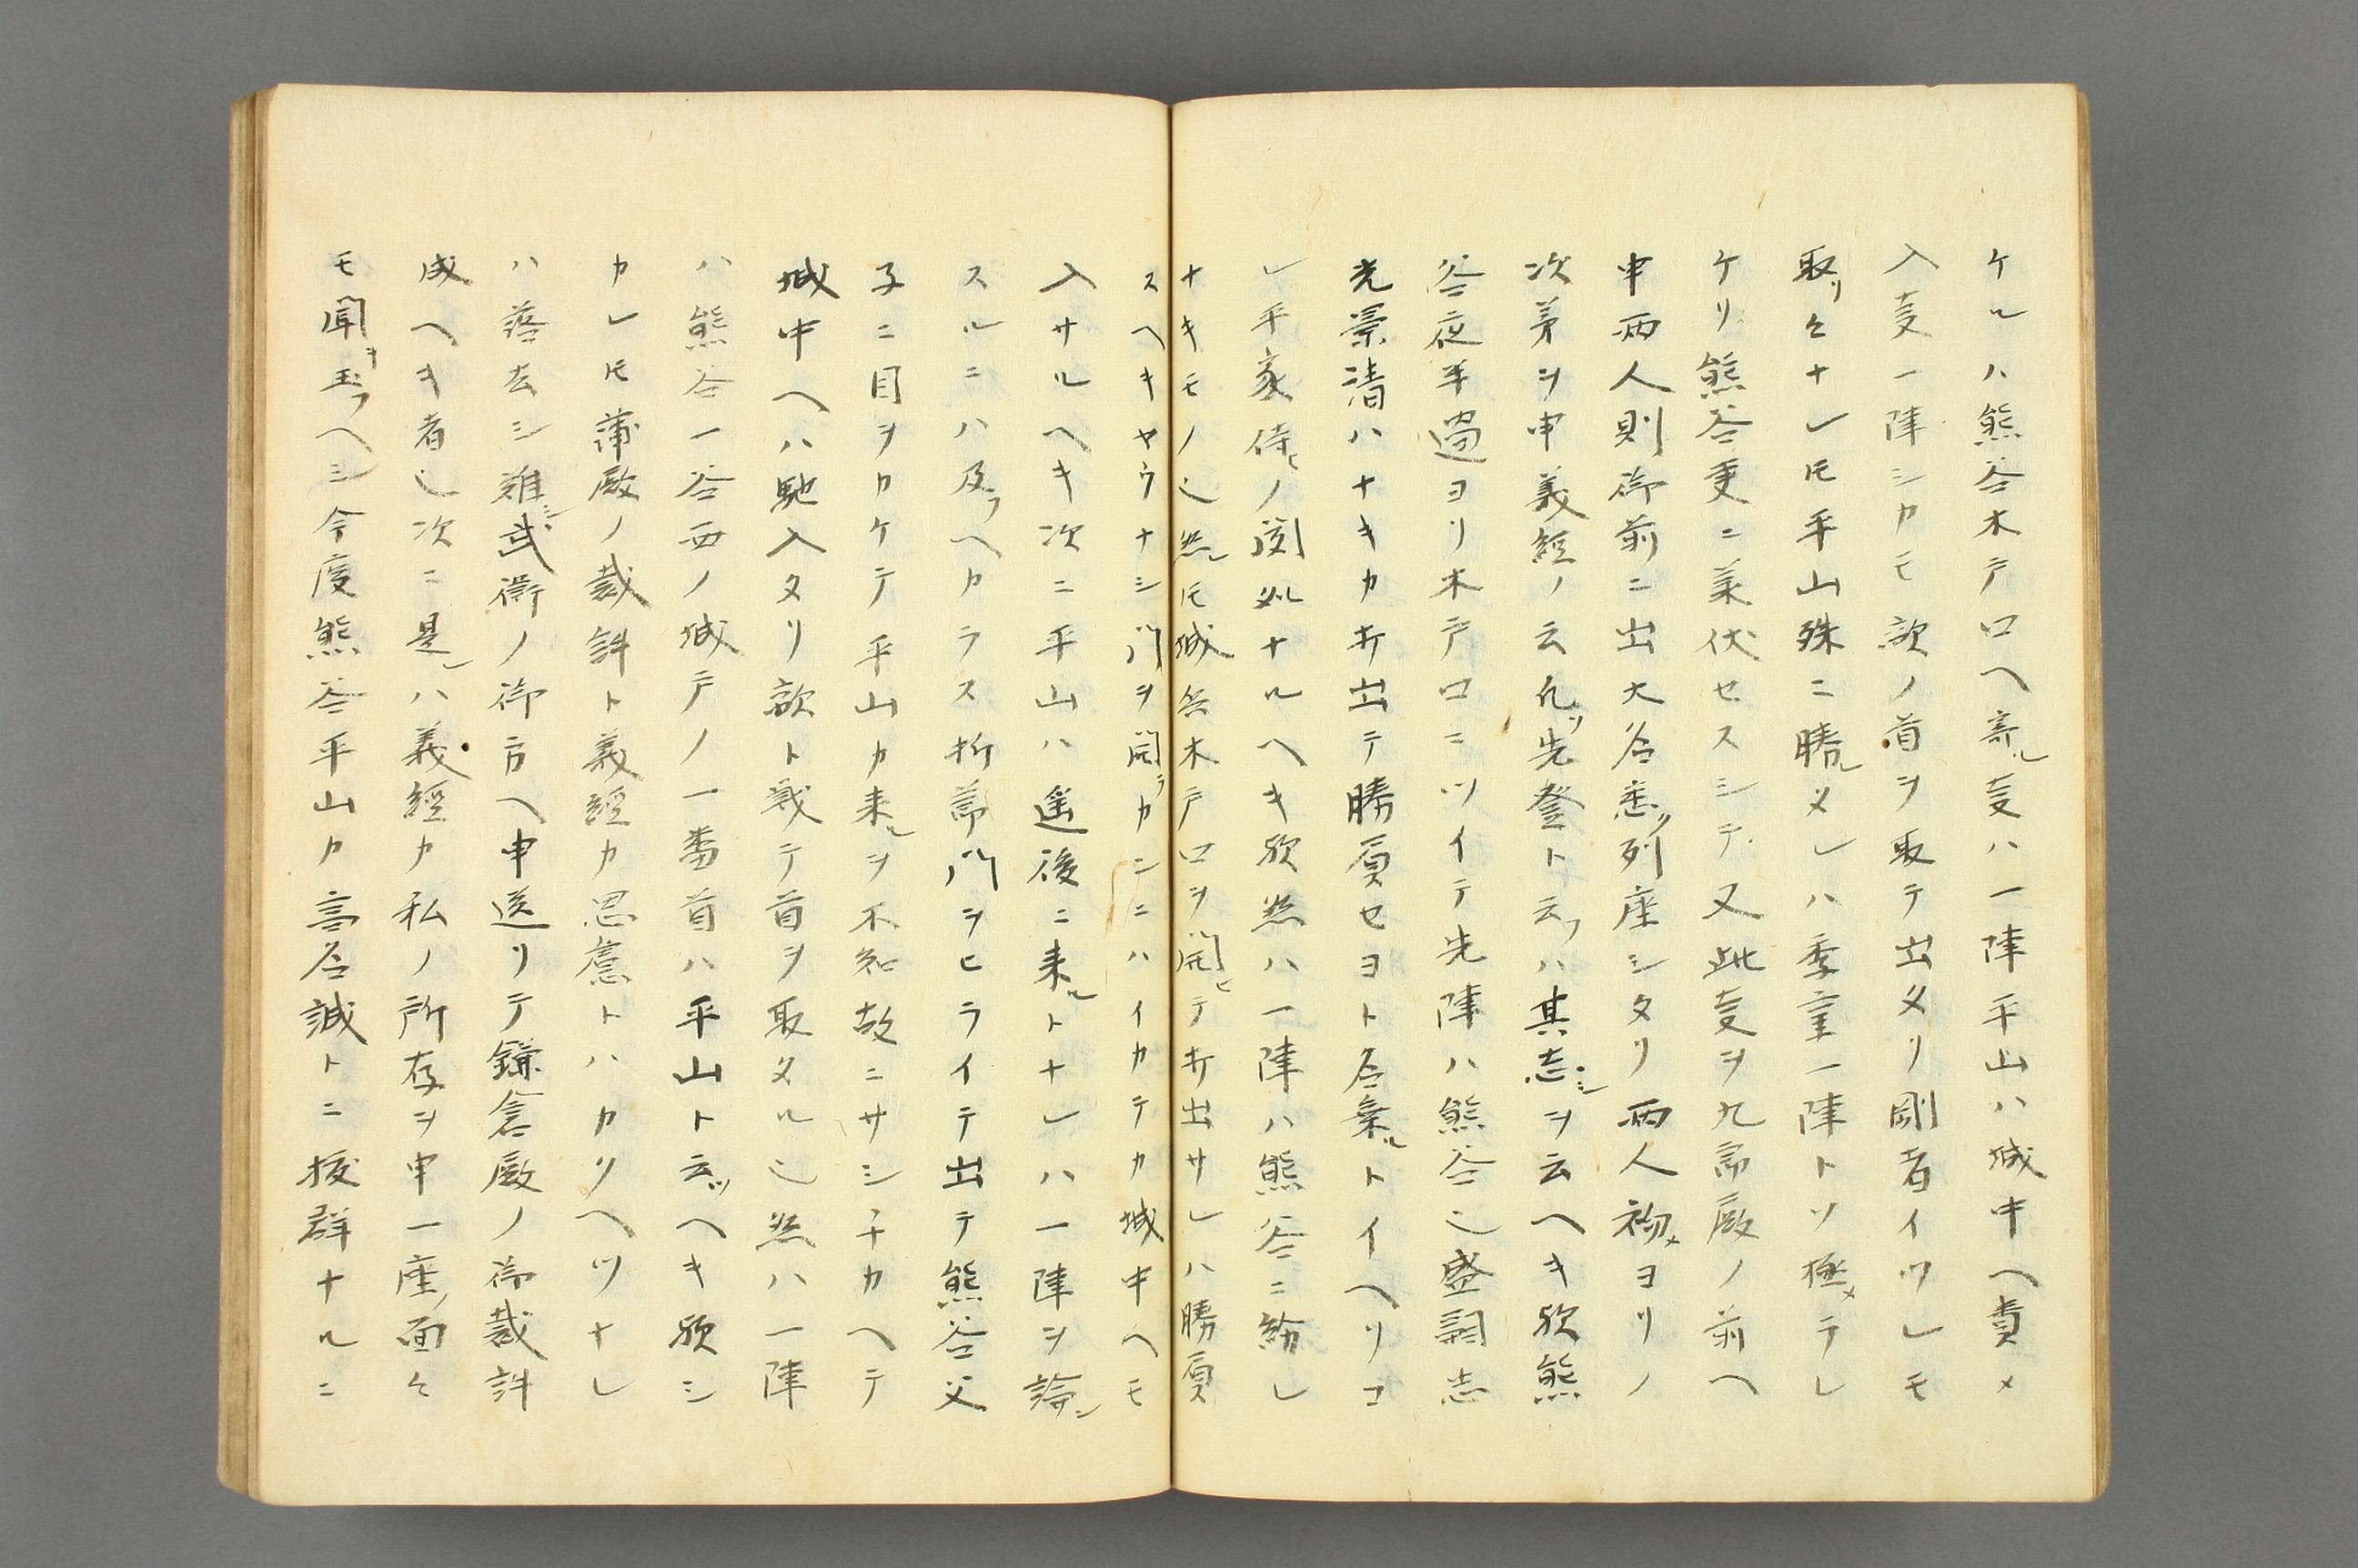 ケルハ熊谷木戸口ヘ寄ル叓ハ一陣平山ハ城中ヘ責メ
入叓一陣シカモ敵ノ首ヲ取テ出タリ剛者イツレモ
取リ々ナレ𪜈平山殊ニ勝レタレハ季重一陣トソ極メラレ
ケリ熊谷更ニ業伏セスシテ又此叓ヲ九郎殿ノ前ヘ
申両人則御前ニ出大名悉ク列座シタリ両人初メヨリノ
次第ヲ申義経ノ云凡ソ先登ト云フハ其志シヲ云ヘキ欤熊
谷夜半過ヨリ木戸口ニツイテ先陣ハ熊谷也盛嗣忠
光景清ハナキカ打出テ勝負セヨト名乗ルトイヘリコ
レ平家侍ヒノ聞処ナルヘキ欤然ハ一陣ハ熊谷ニ紛レ
ナキモノ也然レ𪜈城兵木戸口ヲ開ヒテ打出サレハ勝負
スヘキヤウナシ門ヲ開ラカンニハイカテカ城中ヘモ
入サルヘキ次ニ平山ハ遥後ニ来ルトナレハ一陣ヲ論シ
スルニハ及フヘカラス折節門ヲヒライテ出テ熊谷父
子ニ目ヲカケテ平山カ来ルヲ不知故ニサシチカヘテ
城中ヘハ馳入タリ敵ト戦テ首ヲ取タル也然ハ一陣
ハ熊谷一谷西ノ城戸ノ一番首ハ平山ト云ツヘキ欤シ
カレ𪜈蒲殿ノ裁許ト義経カ思慮トハカリヘツナレ
ハ落去シ難シ武衛ノ御方ヘ申送リテ鎌倉殿ノ御裁許
成ヘキ者也次ニ是レハ義経カ私ノ所存ヲ申一座ノ面々
モ聞キ玉フヘシ今度熊谷平山カ高名誠トニ抜群ナルニ